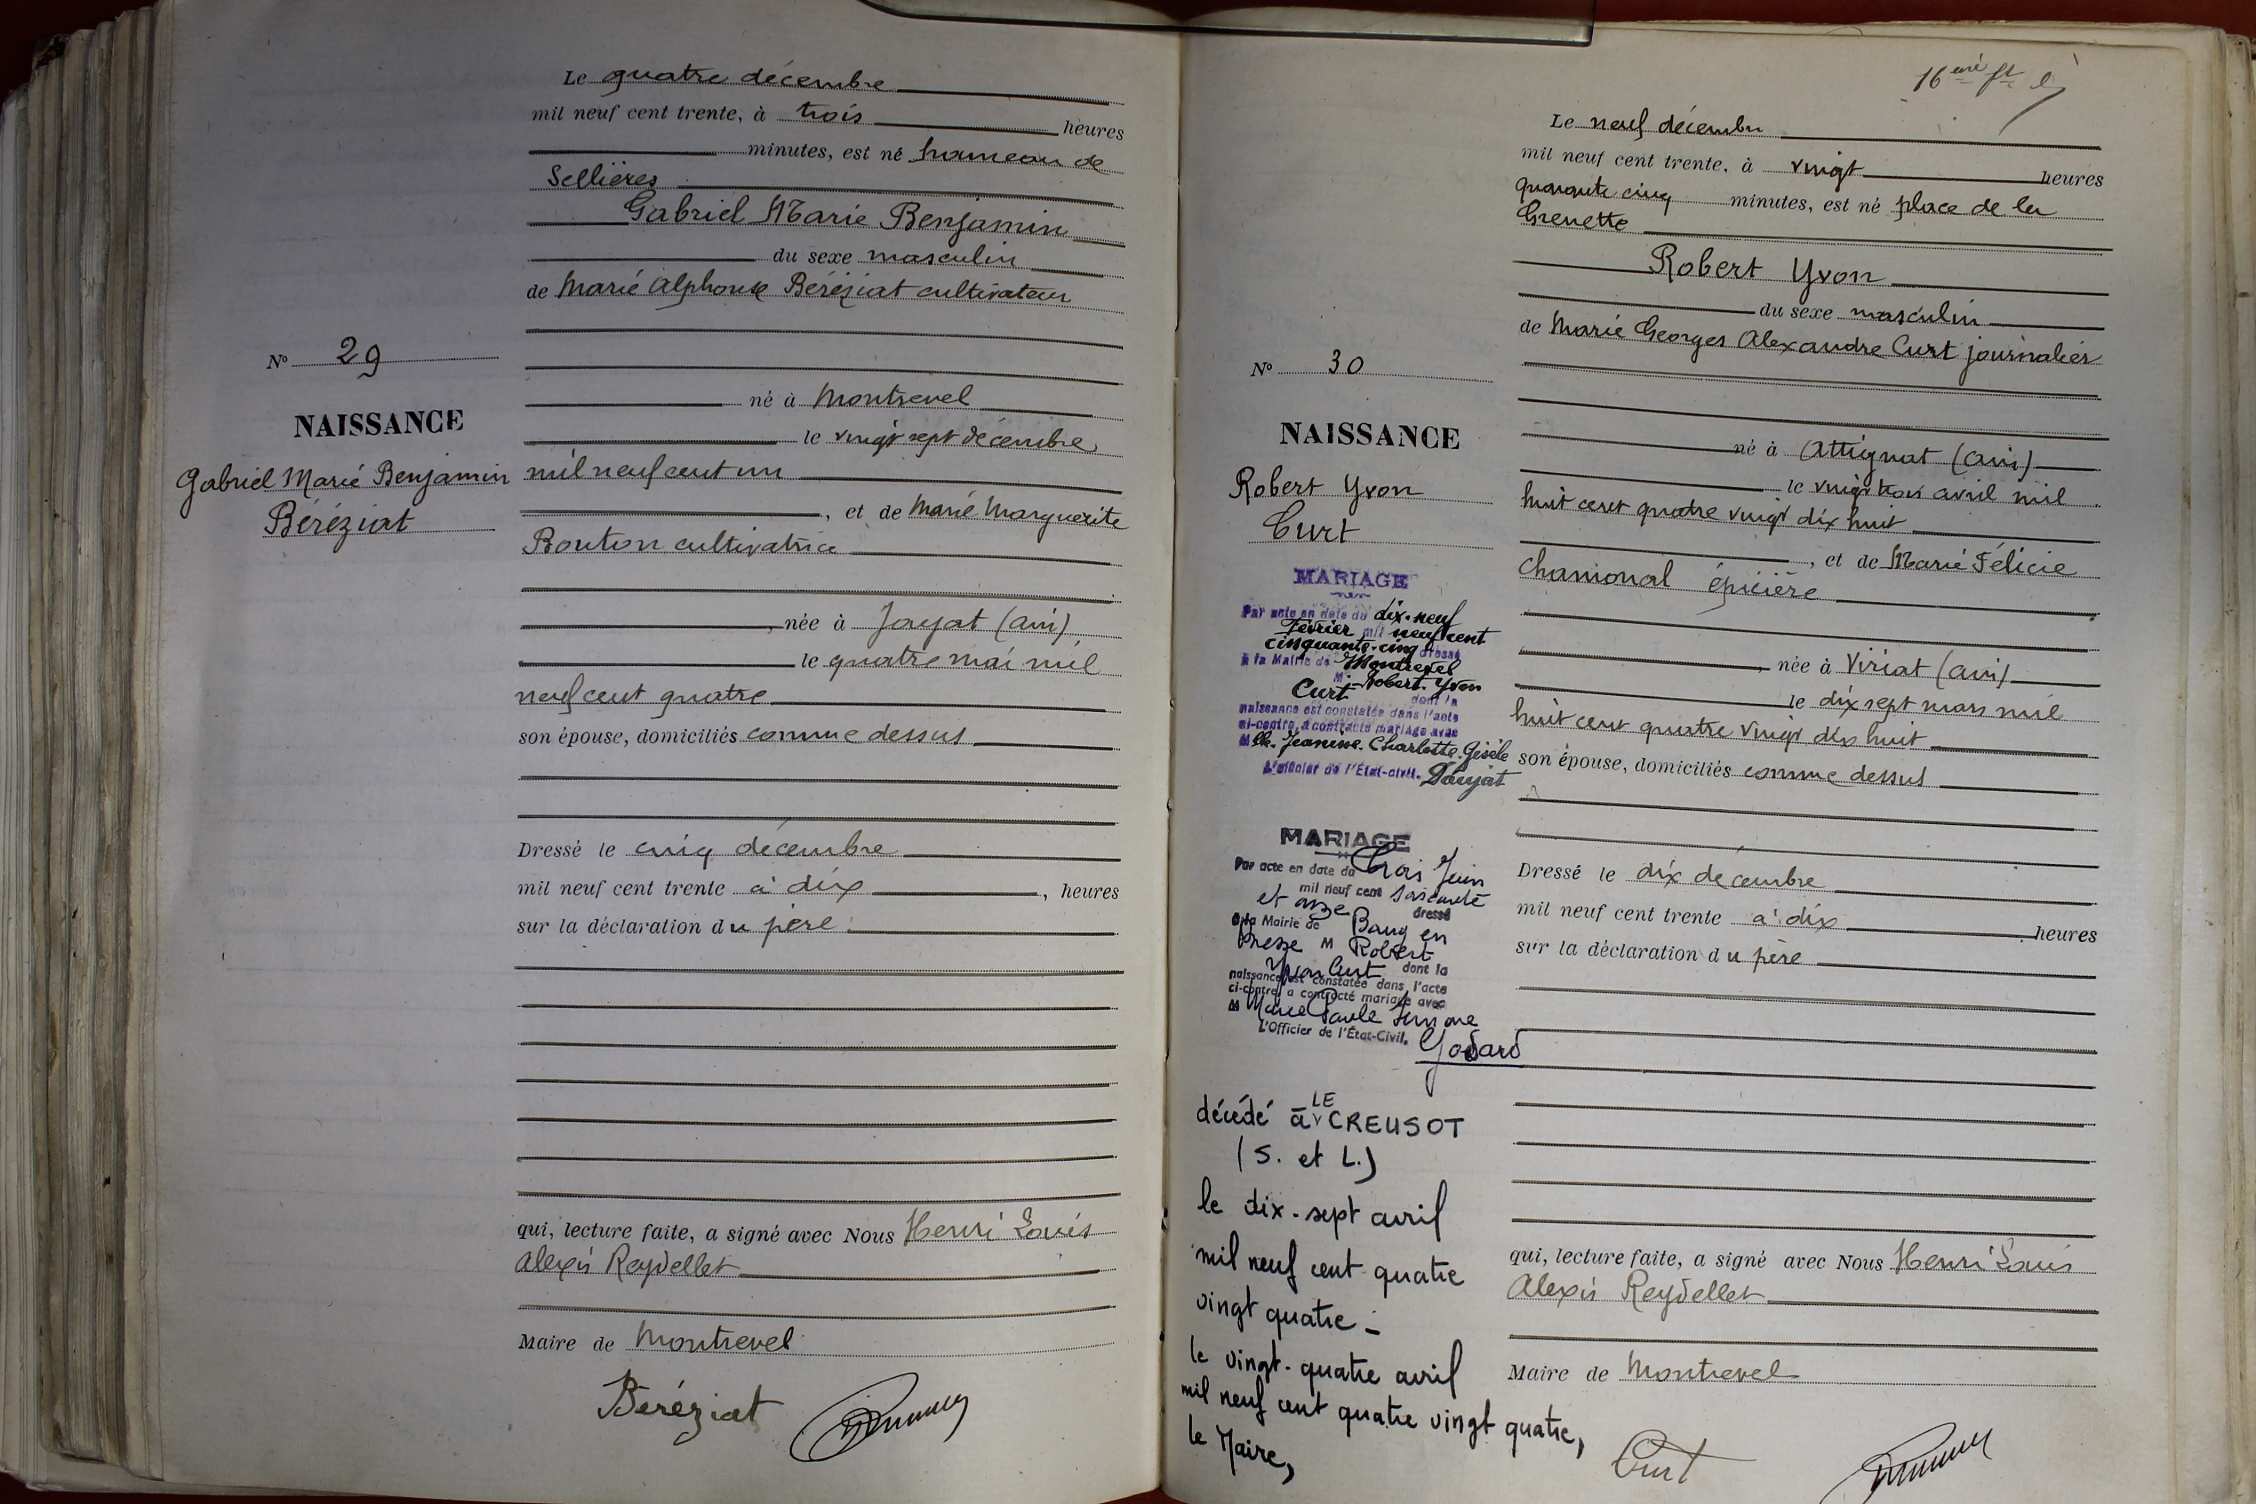 Le quatre décembre
mil neuf cent trente, à trois heures
minutes, est né hameau de
Sellières
Gabriel Marie Benjamin
du sexe masculin
de Marie Alphonse Béréziat cultivateur
né à Montrevel
le vingt sept décembre
mil neuf cent un
, et de Marie Marguerite
Bouton cultivatrice
, née à Jayat (Ain)
le quatre mai mil
neuf cent quatre
son épouse, domiciliés comme dessus
Dressé le cinq décembre
mil neuf cent trente à dix , heures
sur la déclaration du père
qui, lecture faite, a signé avec Nous Henri Louis
Alexis Reydellet
Maire de Montrevel
Béréziat
No 29
NAISSANCE
Gabriel Marie Benjamin
Béréziat
16
Le neuf décembre
mil neuf cent trente, à vingt heures
quarante cinq minutes, est né place de la
Grenette
Robert Yvon
du sexe masculin
de Marie Georges Alexandre Curt journalier
né à Attignat (Ain)
le vingt trois avril mil
huit cent quatre vingt dix huit
, et de Marie Félicie
Chamonal épicière
, née à Viriat (Ain)
le dix sept mars mil
huit cent quatre vingt dix huit
son épouse, domiciliés comme dessus
Dressé le dix décembre
mil neuf cent trente à dix heures
sur la déclaration du père
qui, lecture faite, a signé avec Nous Henri Louis
Alexis Reydellet
Maire de Montrevel
Curt
No 30
NAISSANCE
Robert Yvon
Curt
MARIAGE
Par acte en date du dix-neuf
Février mil neuf cent
cinquante-cinq dressé
à la Mairie de Montrevel
M. Robert Yvon
Curt dont la
naissance est constatée dans l'acte
ci-contre, a contracté mariage avec
Mlle Jeanine Charlotte Gisèle
L'officier de l'État-civil.
MARIAGE
Par acte en date du trois Juin
mil neuf cent soixante
et onze dressé
à la Mairie de Baug en
Bresse M Robert
Yvon Curt dont la
naissance est constatée dans l'acte
ci-contre, a contracté mariage avec
M Marie Paule Simone
L'Officier de l'État-Civil. Godard
décédé à LE CREUSOT
(S. et L.)
le dix-sept avril
mil neuf cent quatre
vingt quatre -
le vingt-quatre avril
mil neuf cent quatre vingt quatre,
le Maire,